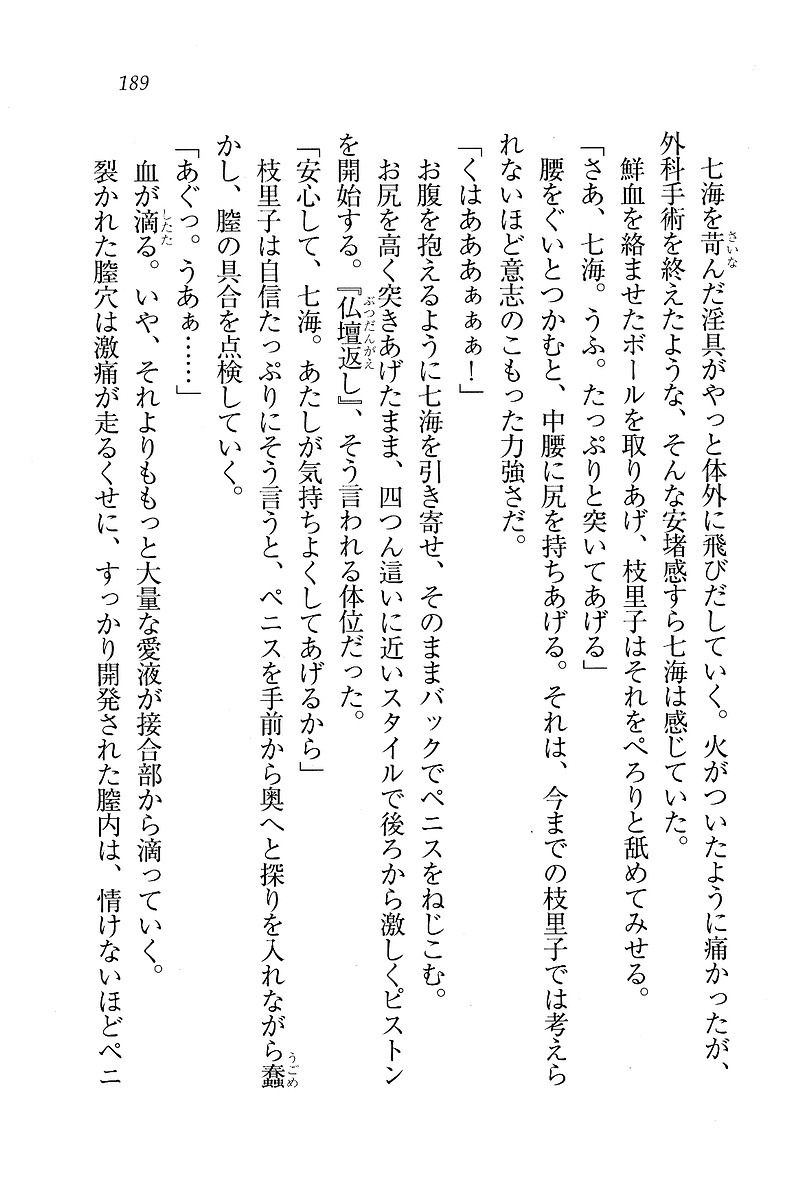 189
七海を苛んだ淫具がやっと体外に飛びだしていく。火がついたように痛かったが、
外科手術を終えたような、そんな安堵感すら七海は感じていた。
鮮血を絡ませたボールを取りあげ、枝里子はそれをぺろりと舐めてみせる。
「さあ、七海。うふ。たっぷりと突いてあげる」
腰をぐいとつかむと、中腰に尻を持ちあげる。それは、今までの枝里子では考えら
れないほど意志のこもった力強さだ。
「くはあああぁぁぁ！」
お腹を抱えるように七海を引き寄せ、そのままバックでペニスをねじこむ。
お尻を高く突きあげたまま、四つん這いに近いスタイルで後ろから激しくピストン
を開始する。『仏壇返し』、そう言われる体位だった。
「安心して、七海。あたしが気持ちよくしてあげるから」
枝里子は自信たっぷりにそう言うと、ペニスを手前から奥へと探りを入れながら蠢
かし、膣の具合を点検していく。
「あぐっ。うあぁ……」
血が滴る。いや、それよりももっと大量な愛液が接合部から滴っていく。
裂かれた膣穴は激痛が走るくせに、すっかり開発された膣内は、情けないほどペニ